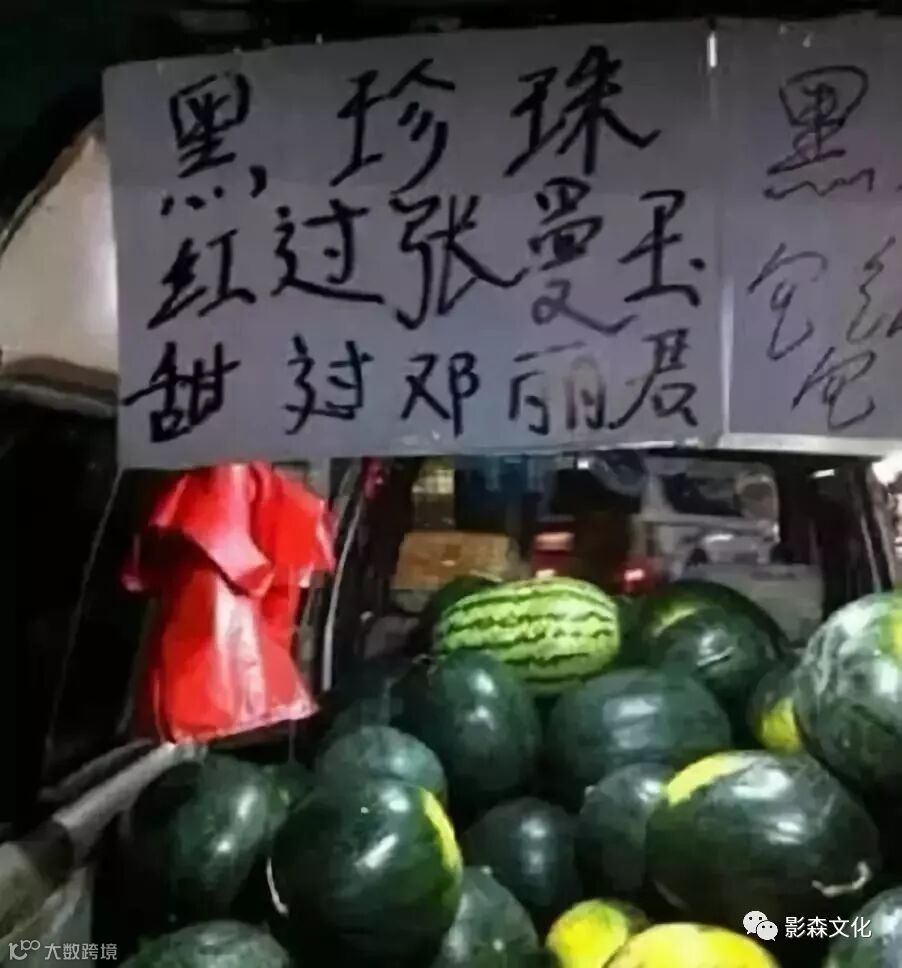 黑珍珠
红过张曼玉
甜过邓丽君
黑
包
包
影森文化
大数跨境